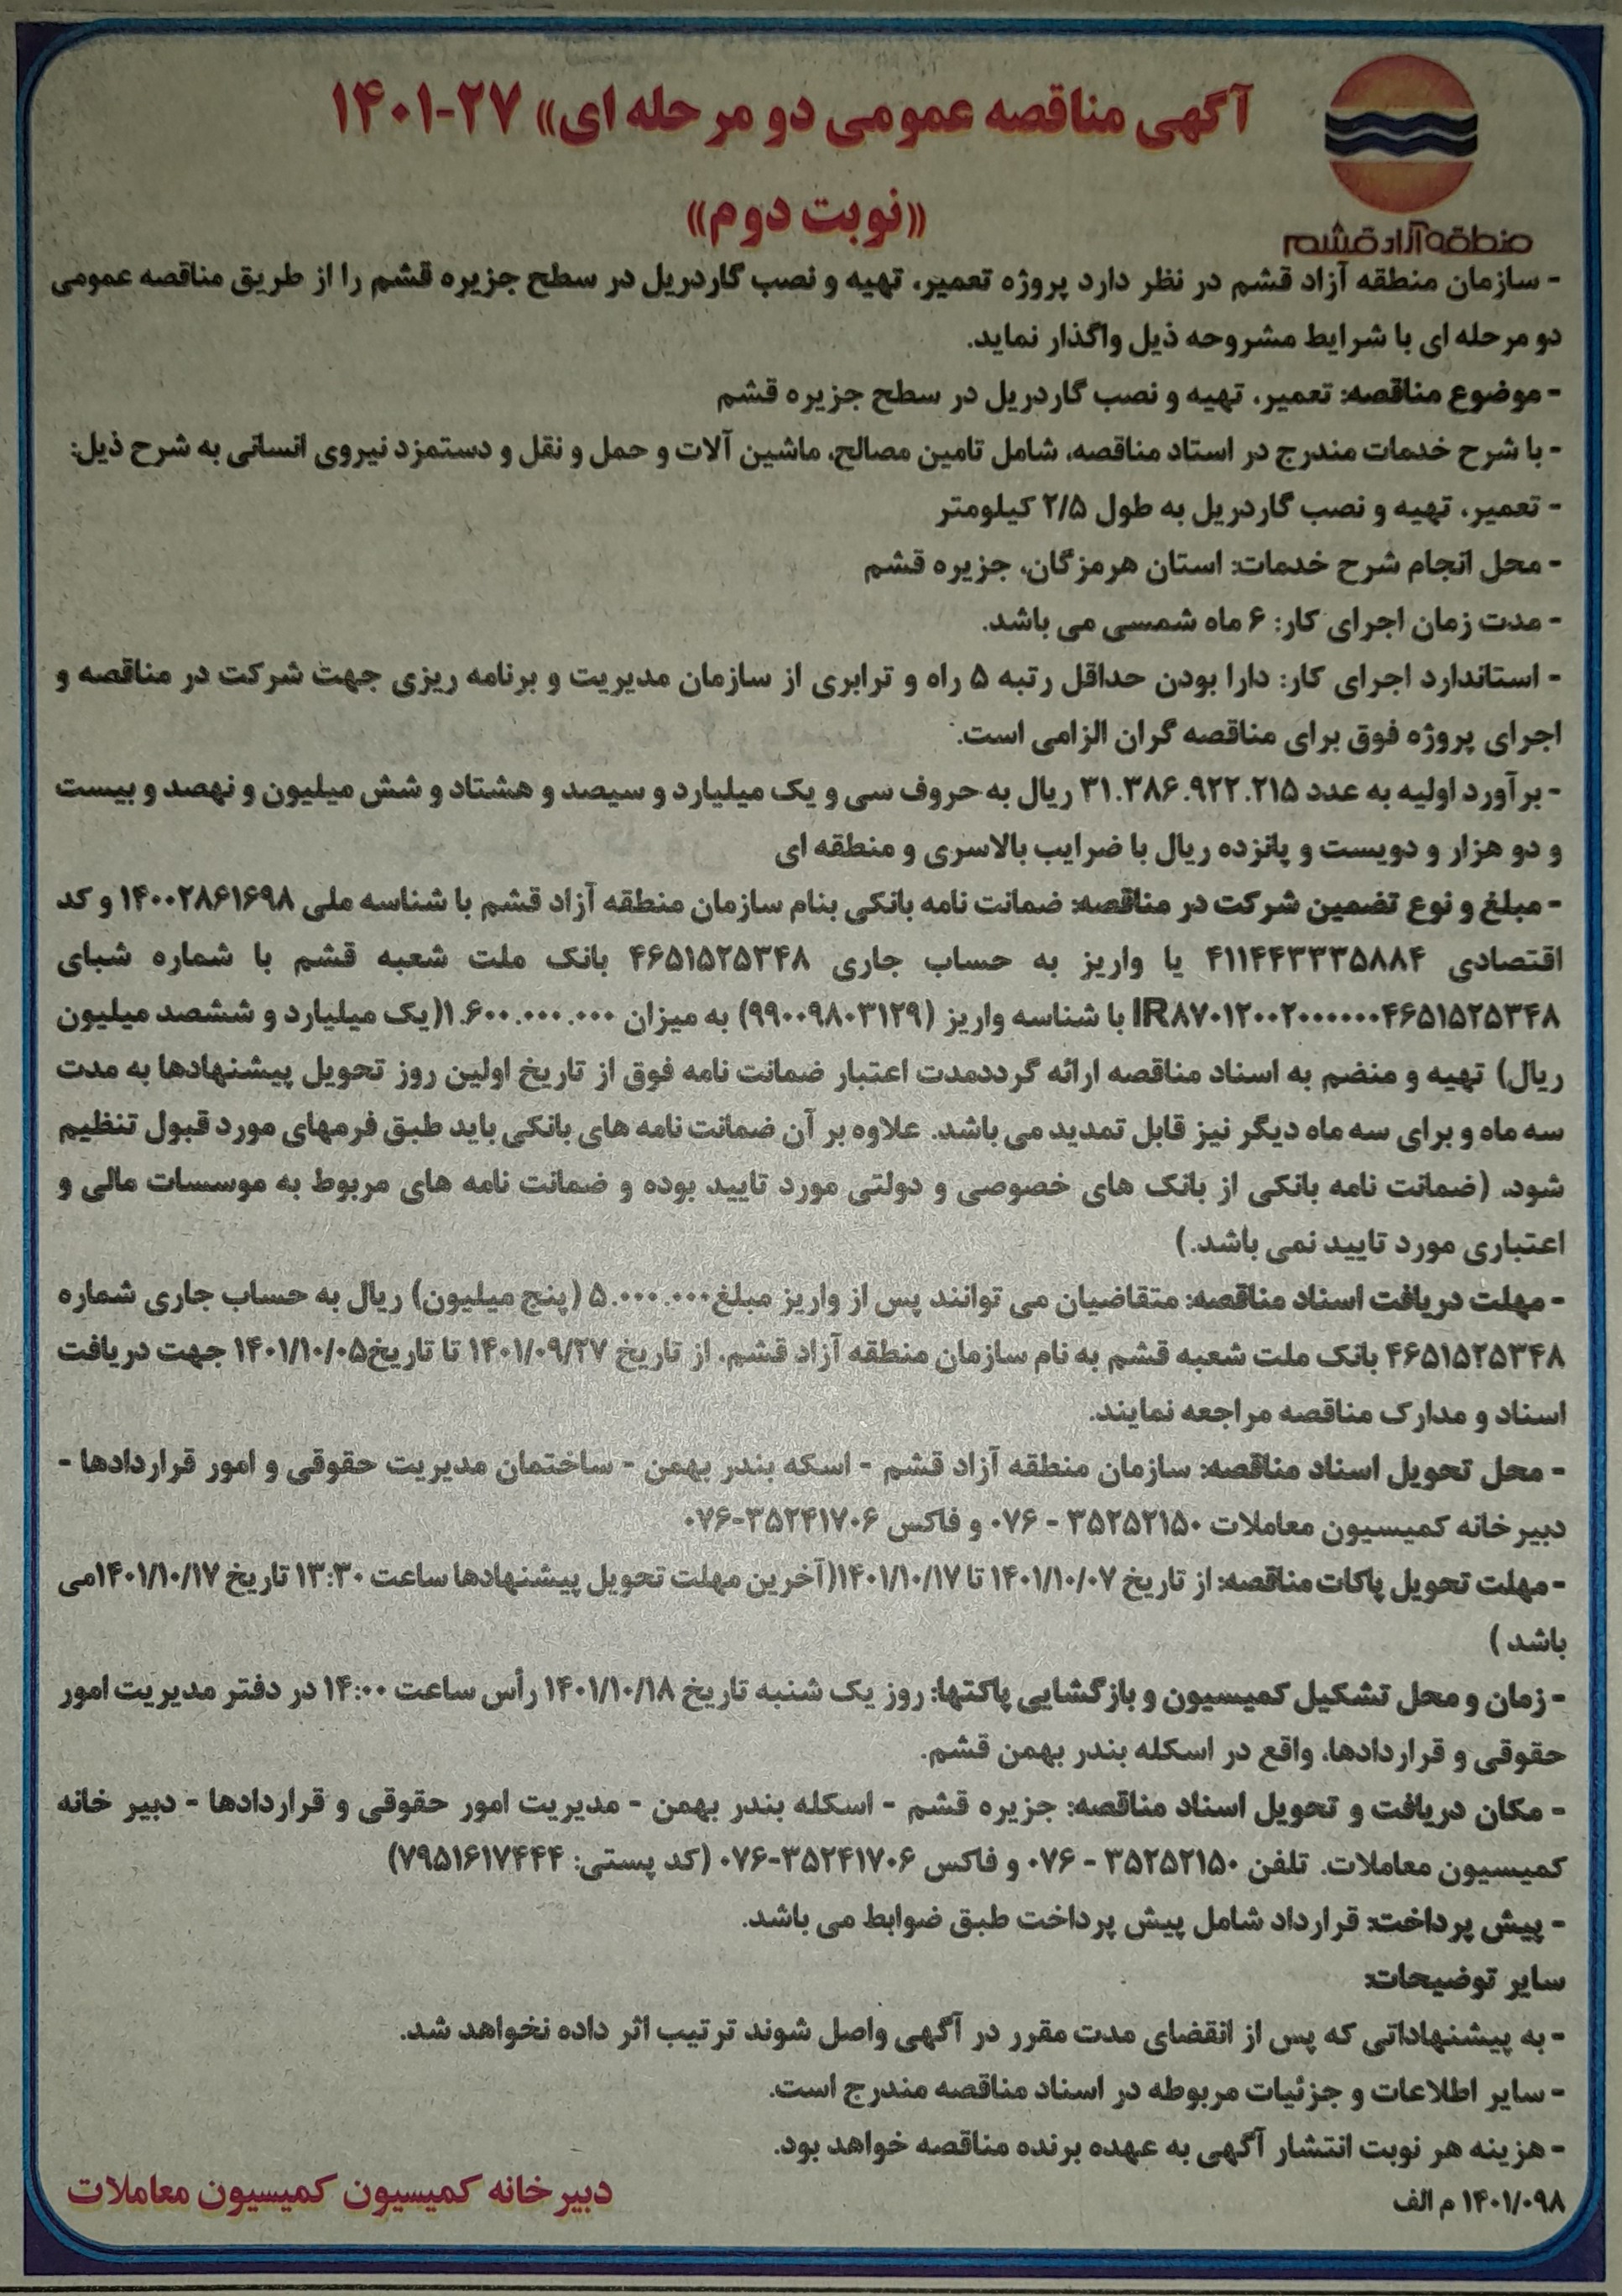 آگهی مناقصه عمومی دو مرحله ای» ۲۷-۱۴۰۱
«نوبت دوم»
منطقه آزاد قشم
- سازمان منطقه آزاد قشم در نظر دارد پروژه تعمیر، تهیه و نصب گاردریل در سطح جزیره قشم را از طریق مناقصه عمومی
دو مرحله ای با شرایط مشروحه ذیل واگذار نماید.
- موضوع مناقصه: تعمیر، تهیه و نصب گاردریل در سطح جزیره قشم
- با شرح خدمات مندرج در استاد مناقصه، شامل تامین مصالح، ماشین آلات و حمل و نقل و دستمزد نیروی انسانی به شرح ذیل:
- تعمیر، تهیه و نصب گاردریل به طول ۲/۵ کیلومتر
- محل انجام شرح خدمات: استان هرمزگان، جزیره قشم
- مدت زمان اجرای کار: ۶ ماه شمسی می باشد.
- استاندارد اجرای کار: دارا بودن حداقل رتبه ۵ راه و ترابری از سازمان مدیریت و برنامه ریزی جهت شرکت در مناقصه و
اجرای پروژه فوق برای مناقصه گران الزامی است.
- برآورد اولیه به عدد ۳۱.۳۸۶.۹۲۲.۲۱۵ ریال به حروف سی و یک میلیارد و سیصد و هشتاد و شش میلیون و نهصد و بیست
و دو هزار و دویست و پانزده ریال با ضرایب بالاسری و منطقه ای
- مبلغ و نوع تضمین شرکت در مناقصه: ضمانت نامه بانکی بنام سازمان منطقه آزاد قشم با شناسه ملی ۱۴۰۰۲۸۶۱۶۹۸ و کد
اقتصادی ۴۱۱۴۴۳۳۳۵۸۸۴ یا واریز به حساب جاری ۴۶۵۱۵۲۵۳۴۸ بانک ملت شعبه قشم با شماره شبای
IR۸۷۰۱۲۰۰۲۰۰۰۰۰۰۴۶۵۱۵۲۵۳۴۸ با شناسه واریز (۹۹۰۰۹۸۰۳۱۲۹) به میزان ۱.۶۰۰.۰۰۰.۰۰۰(یک میلیارد و ششصد میلیون
ریال) تهیه و منضم به اسناد مناقصه ارائه گرددمدت اعتبار ضمانت نامه فوق از تاریخ اولین روز تحویل پیشنهادها به مدت
سه ماه و برای سه ماه دیگر نیز قابل تمدید می باشد. علاوه بر آن ضمانت نامه های بانکی باید طبق فرمهای مورد قبول تنظیم
شود. (ضمانت نامه بانکی از بانک های خصوصی و دولتی مورد تایید بوده و ضمانت نامه های مربوط به موسسات مالی و
اعتباری مورد تایید نمی باشد.)
- مهلت دریافت اسناد مناقصه: متقاضیان می توانند پس از واریز مبلغ۵.۰۰۰.۰۰۰ (پنج میلیون) ریال به حساب جاری شماره
۴۶۵۱۵۲۵۳۴۸ بانک ملت شعبه قشم به نام سازمان منطقه آزاد قشم، از تاریخ ۱۴۰۱/۰۹/۲۷ تا تاریخ۱۴۰۱/۱۰/۰۵ جهت دریافت
اسناد و مدارک مناقصه مراجعه نمایند.
- محل تحویل اسناد مناقصه: سازمان منطقه آزاد قشم - اسکه بندر بهمن - ساختمان مدیریت حقوقی و امور قراردادها -
دبیرخانه کمیسیون معاملات ۳۵۲۵۲۱۵۰ - ۰۷۶ و فاکس ۳۵۲۴۱۷۰۶-۰۷۶
- مهلت تحویل پاکات مناقصه: از تاریخ ۱۴۰۱/۱۰/۰۷ تا ۱۴۰۱/۱۰/۱۷(آخرین مهلت تحویل پیشنهادها ساعت ۱۳:۳۰ تاریخ ۱۴۰۱/۱۰/۱۷می
باشد )
- زمان و محل تشکیل کمیسیون و بازگشایی پاکتها: روز یک شنبه تاریخ ۱۴۰۱/۱۰/۱۸ رأس ساعت ۱۴:۰۰ در دفتر مدیریت امور
حقوقی و قراردادها، واقع در اسکله بندر بهمن قشم.
- مکان دریافت و تحویل اسناد مناقصه: جزیره قشم - اسکله بندر بهمن - مدیریت امور حقوقی و قراردادها - دبیر خانه
کمیسیون معاملات. تلفن ۳۵۲۵۲۱۵۰ - ۰۷۶ و فاکس ۳۵۲۴۱۷۰۶-۰۷۶ (کد پستی: ۷۹۵۱۶۱۷۴۴۴)
- پیش پرداخت: قرارداد شامل پیش پرداخت طبق ضوابط می باشد.
سایر توضیحات:
- به پیشنهاداتی که پس از انقضای مدت مقرر در آگهی واصل شوند ترتیب اثر داده نخواهد شد.
- سایر اطلاعات و جزئیات مربوطه در اسناد مناقصه مندرج است.
- هزینه هر نوبت انتشار آگهی به عهده برنده مناقصه خواهد بود.
۱۴۰۱/۰۹۸ م الف
دبیرخانه کمیسیون کمیسیون معاملات